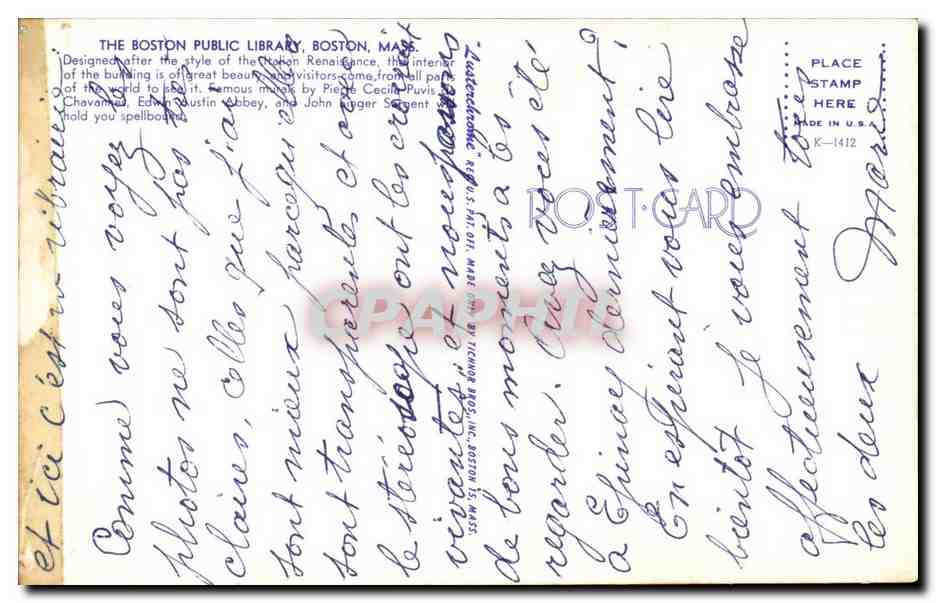 THE BOSTON PUBLIC LIBRARY, BOSTON, MASS.
Designed after the style of the Italian Renaissance, the interior
of the building is of great beauty and visitors come from all parts
of the world to see it. Famous murals by Pierre Cecile Puvis
Chavannes, Edwin Austin Abbey, and John Singer Sargent
hold you spellbound.
PLACE
STAMP
HERE
MADE IN U.S.A.
K-1412
POST CARD
"Lusterchrome" REG. U. S. PAT. OFF. MADE ONLY BY TICHNOR BROS., INC., BOSTON 15, MASS.
CPAPHIL
et ici c'est un libraire
Comme vous voyez les
photos ne sont pas très
claires, elles que j'ai
sont mieux parceque elles
sont transparents et avec
le stéréoscope ont les croirait
vivantes, et nous passons
de bons moments à les
regarder. Avez vous été
à Epinay dernièrement?
En espérant vous lire
bientôt je vous embrasse
affectueusement tous
les deux
Marie